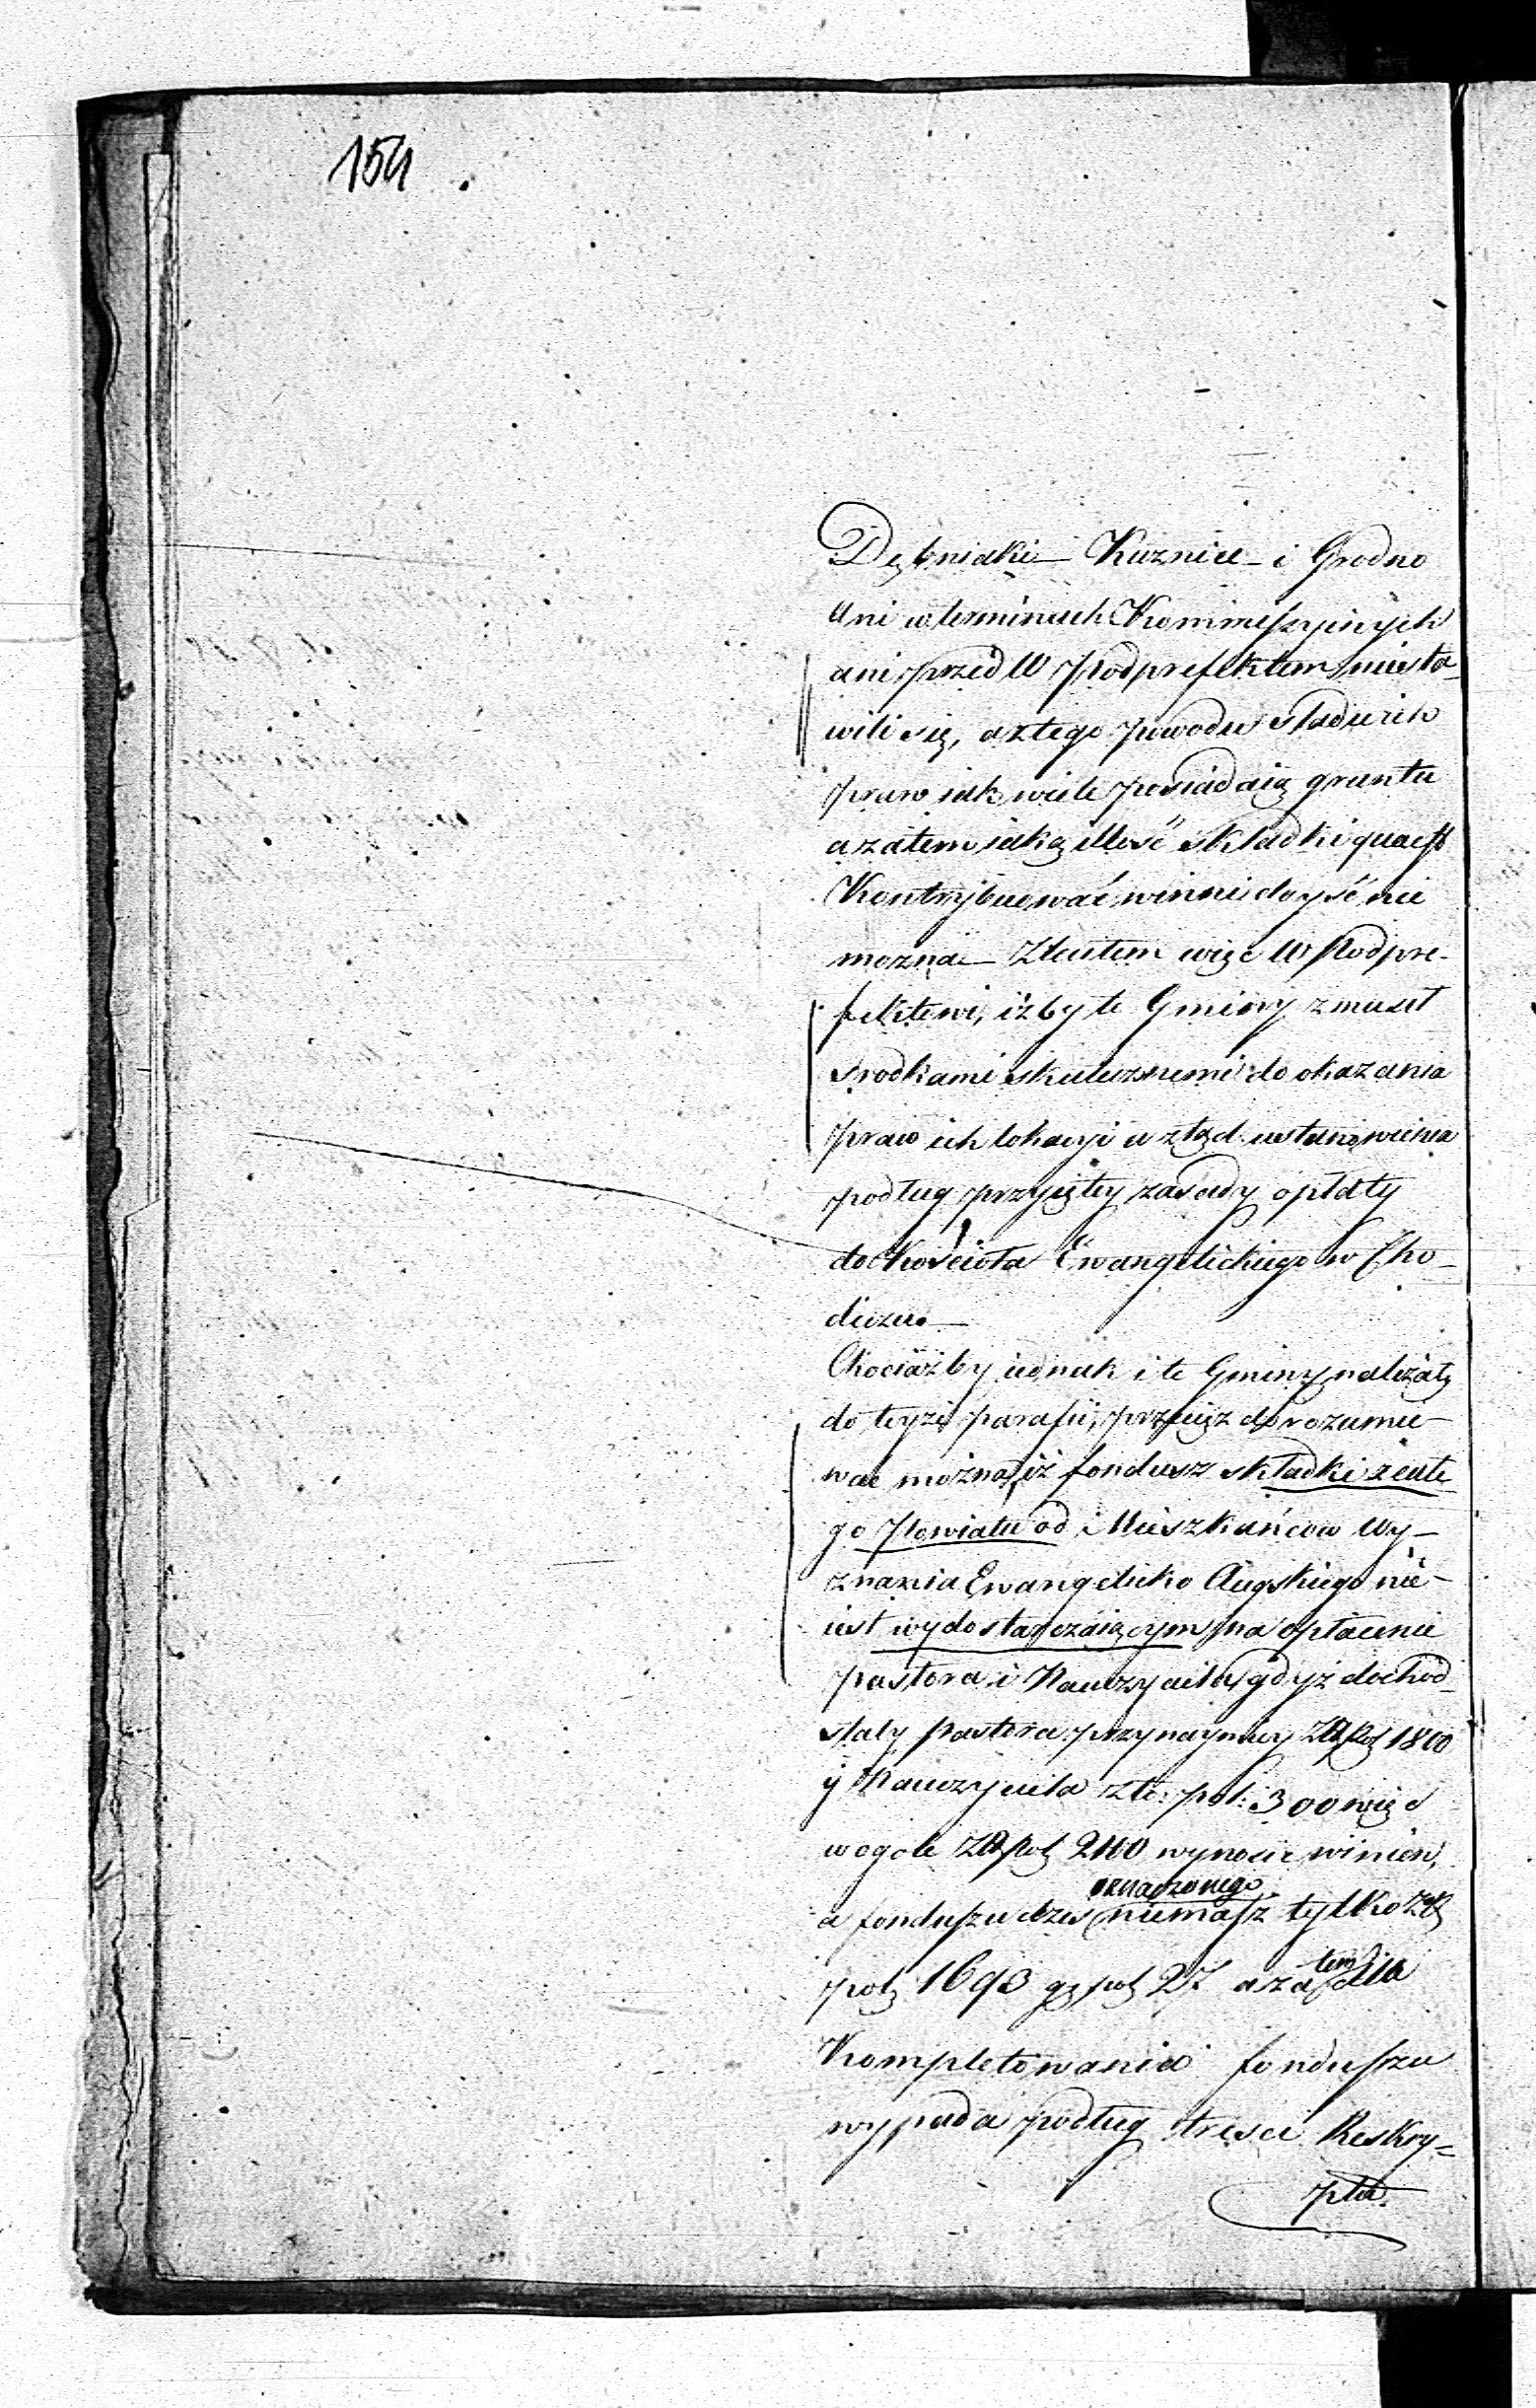 154
Dębniaki Kuznice i Grodno
Ani w terminach Kommissyinych
ani przed W Podprefektem niesta-
wili się, a z tego powodu śladu ich
praw iak wiele posiadaią gruntu
a zatem iaką illość składki quaest
Kontrybuować winni doyść nie
mozna Zleciłem więc W Podpre-
fektowi, iżby te Gminy zmusił
srodkami skutecznemi do okazania
praw ich lokacyi a ztąd ustanowienia
podług przyiętey zasady opłaty
do Kościoła Ewangelickiego w Cho-
dczu.
Chociażby iednak i te Gminy należały
do teyże parafii, przecięz dorozumie-
wać można, iż fondusz składki z całe
go Powiatu od Mieszkańców Wy-
znania Ewangelicko Augskiego nie
iest wydostarczaiącym na opłacenie
pastora i Nauczyciela, gdyż dochod
stały pastora przynaymniey Złpol 1800
y Nauczyciela złt: pol: 300 więc
wogole Złpol 2100 wynosić winien,
oznaczonego
a funduszu niemasz tylko Zł
pol 1693 g pol 27 a zatem dla
Kompletowania funduszu
wypada podług tresci Reskry=
ptu.